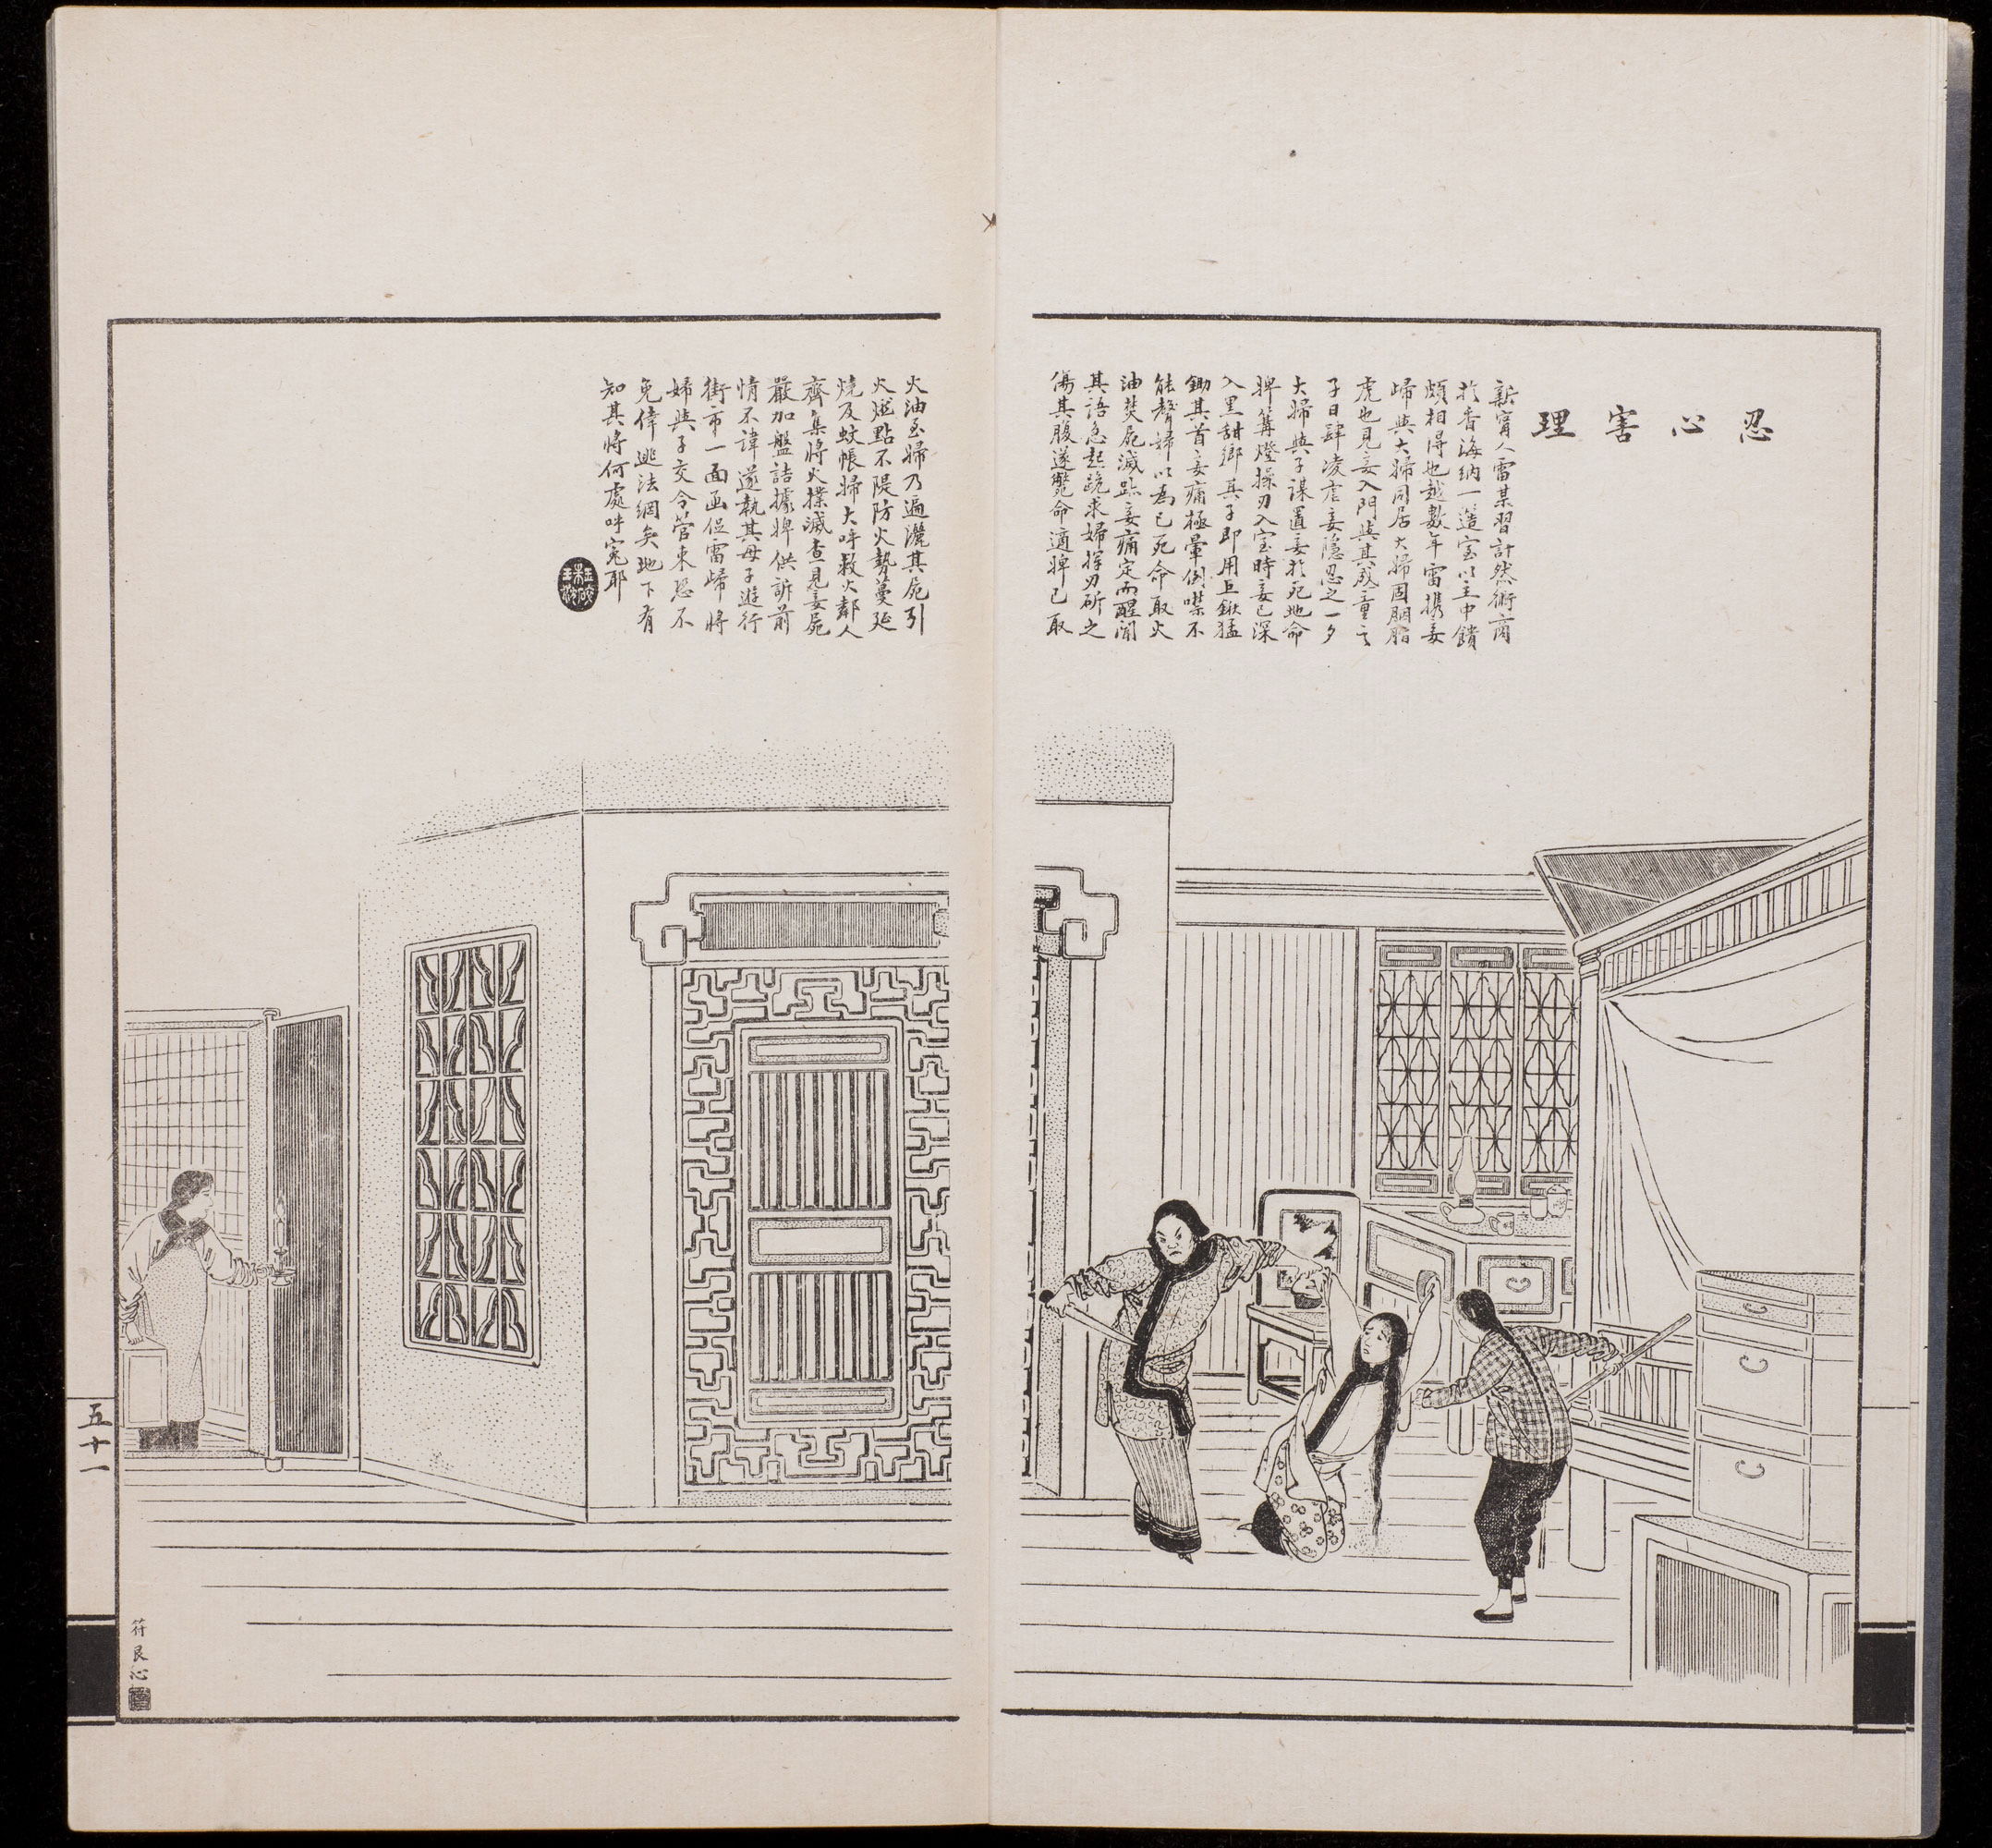 忍心害理
新甯人雷某習計然術商
於香海納一簉室以主中饋
頗相得也越數年雷攜妾
歸與大婦同居大婦固胭脂
虎也見妾入門與其成童之
子日肆凌虐妾隱忍之一夕
大婦與子謀置妾於死地命
婢篝燈操刃入室時妾已深
入黑甜鄉其子即用巨鍬猛
鋤其首妾痛極暈倒噤不
能聲婦以為已死命取火
油焚屍滅跡妾痛定而醒聞
其語急起跪求婦揮刃斫之
傷其腹遂斃命適婢已取
火油至婦乃遍灑其屍引
火燃點不隄防火勢蔓延
燒及蚊帳婦大呼救火鄰人
齊集將火撲滅查見妾屍
嚴加盤詰據婢供訴前
情不諱遂執其母子遊行
街市一面函促雷歸將
婦與子交令管束恐不
免倖逃法網矣地下有
知其將何處呼冤耶
五十一
符艮心